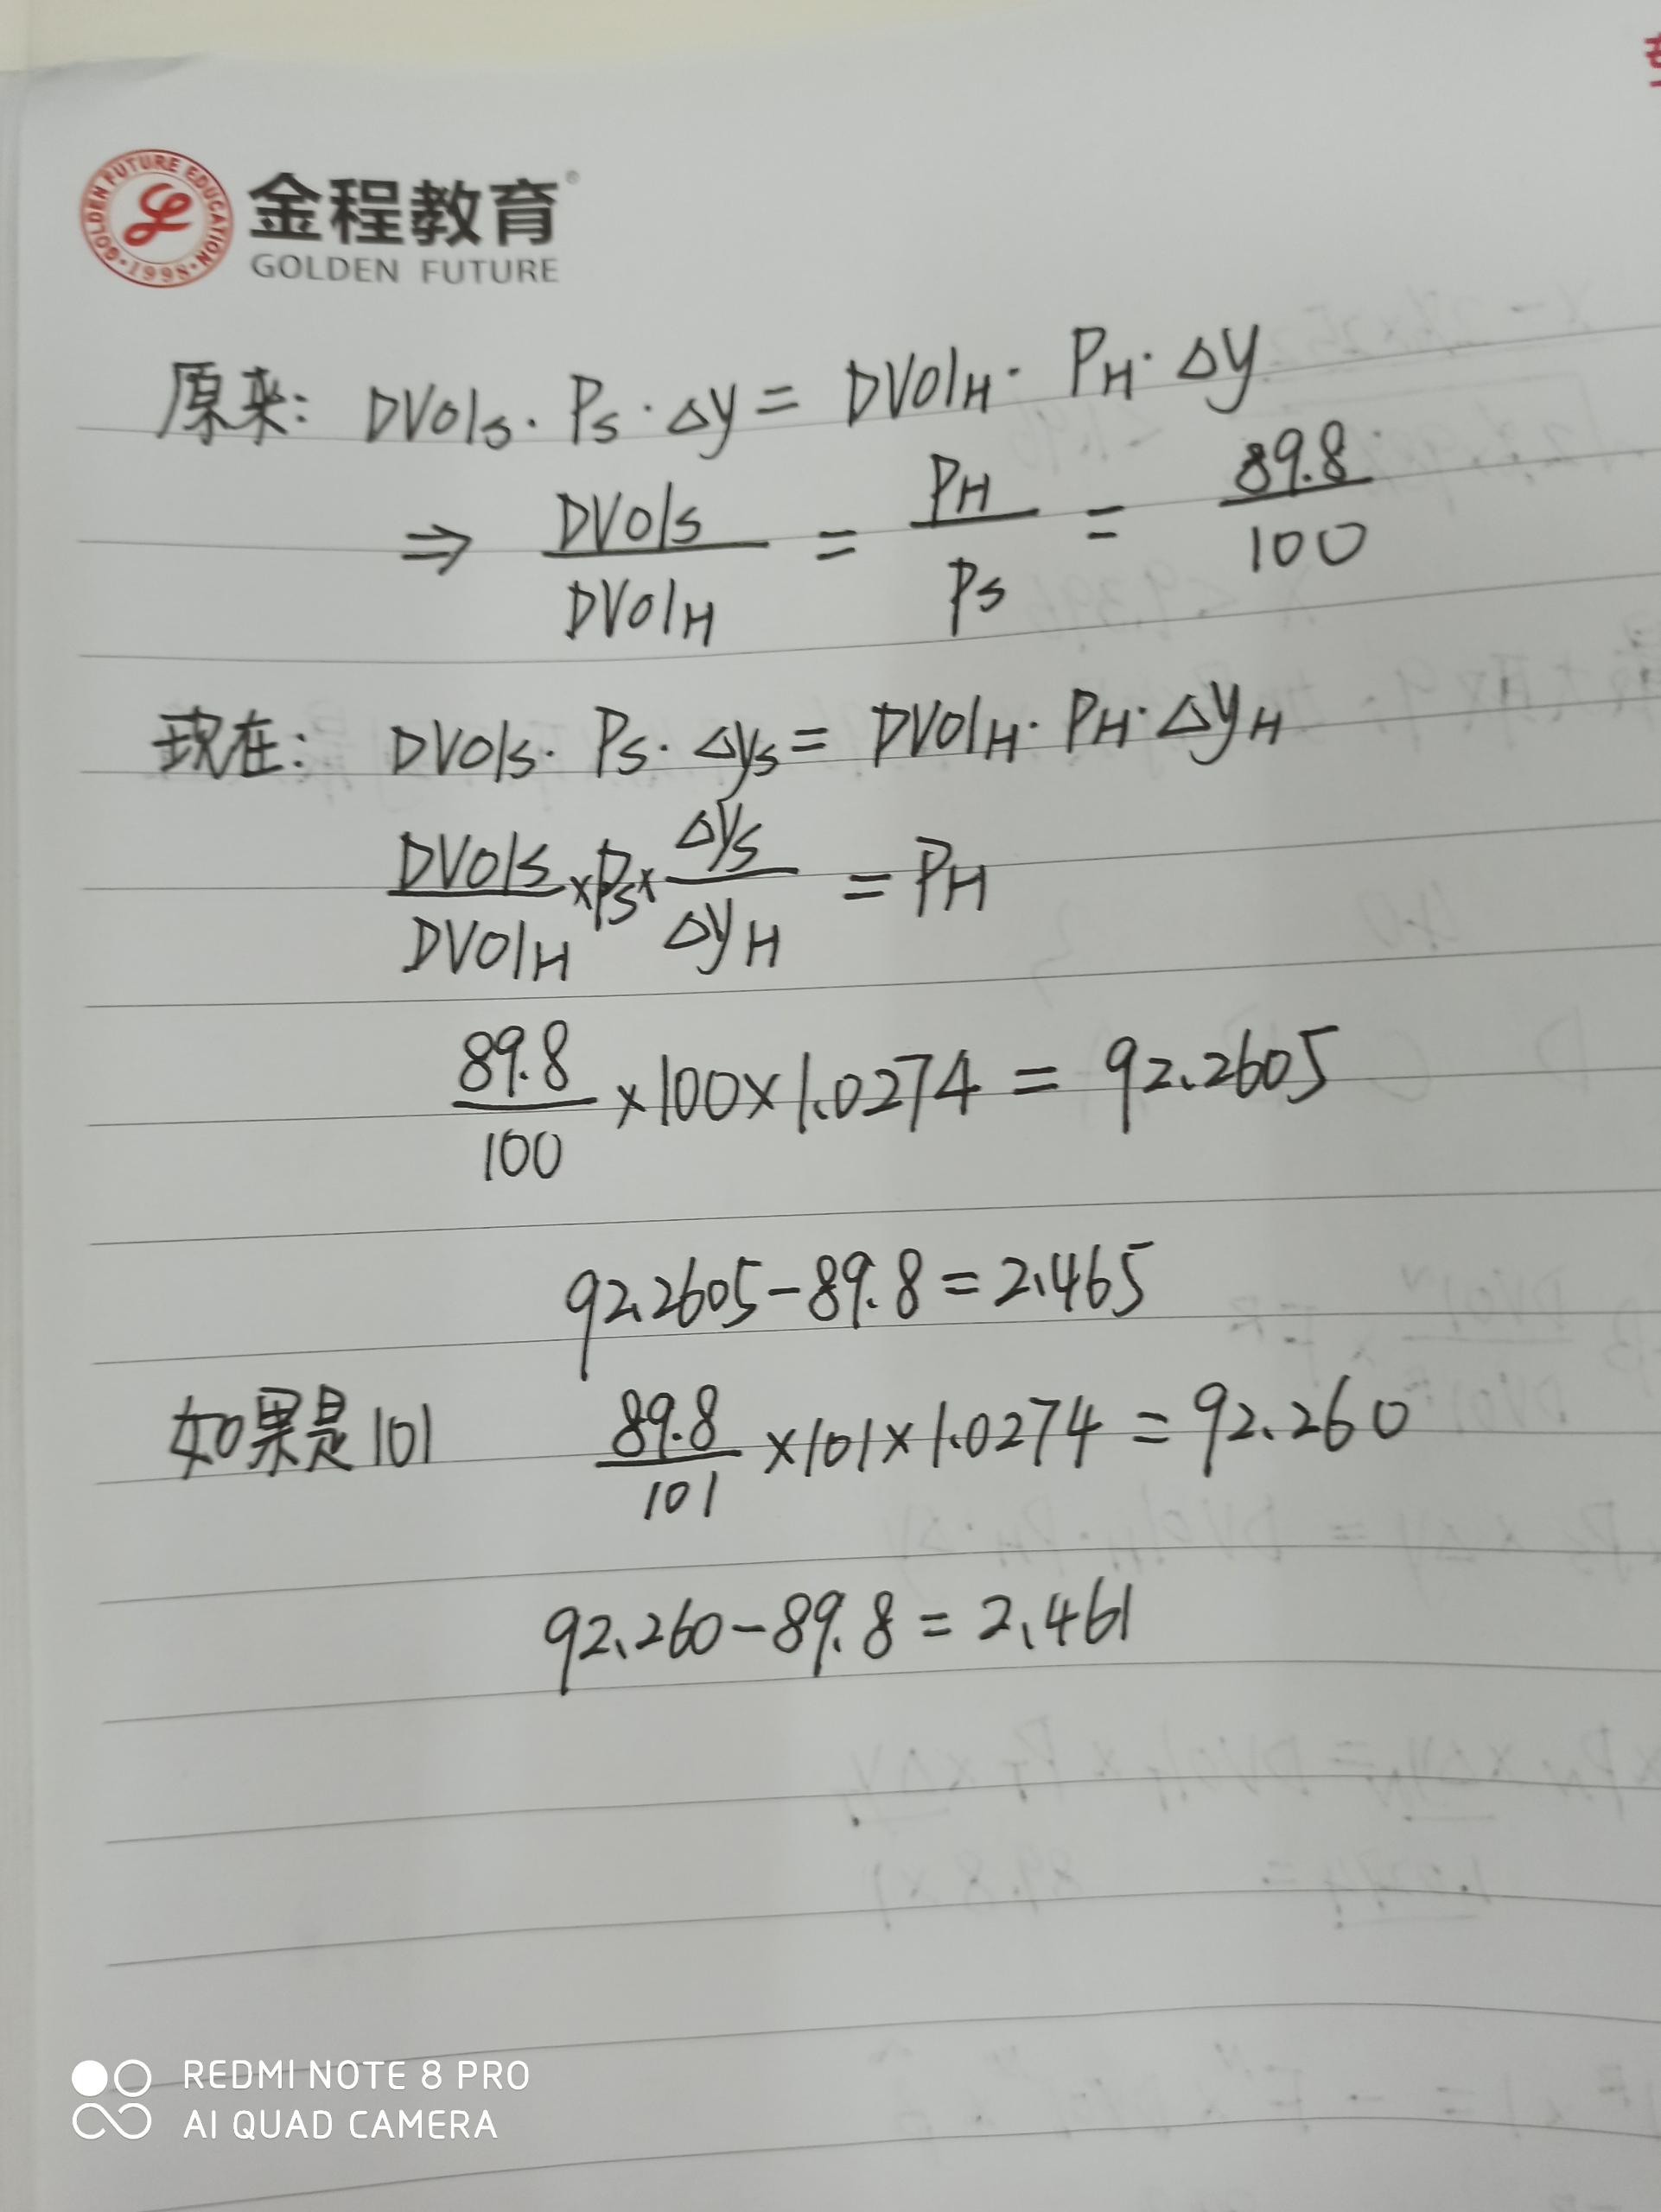 GOLDEN FUTURE EDUCATION
1998
金程教育®
GOLDEN FUTURE
原来: DV01s · Ps · Δy = DV01H · PH · Δy
⇒ DV01s / DV01H = PH / Ps = 89.8 / 100
现在: DV01s · Ps · Δys = DV01H · PH · ΔyH
DV01s / DV01H × Ps × Δys / ΔyH = PH
89.8 / 100 × 100 × 1.0274 = 92.2605
92.2605 - 89.8 = 2.465
如果是101 89.8 / 101 × 101 × 1.0274 = 92.260
92.260 - 89.8 = 2.461
REDMI NOTE 8 PRO
AI QUAD CAMERA